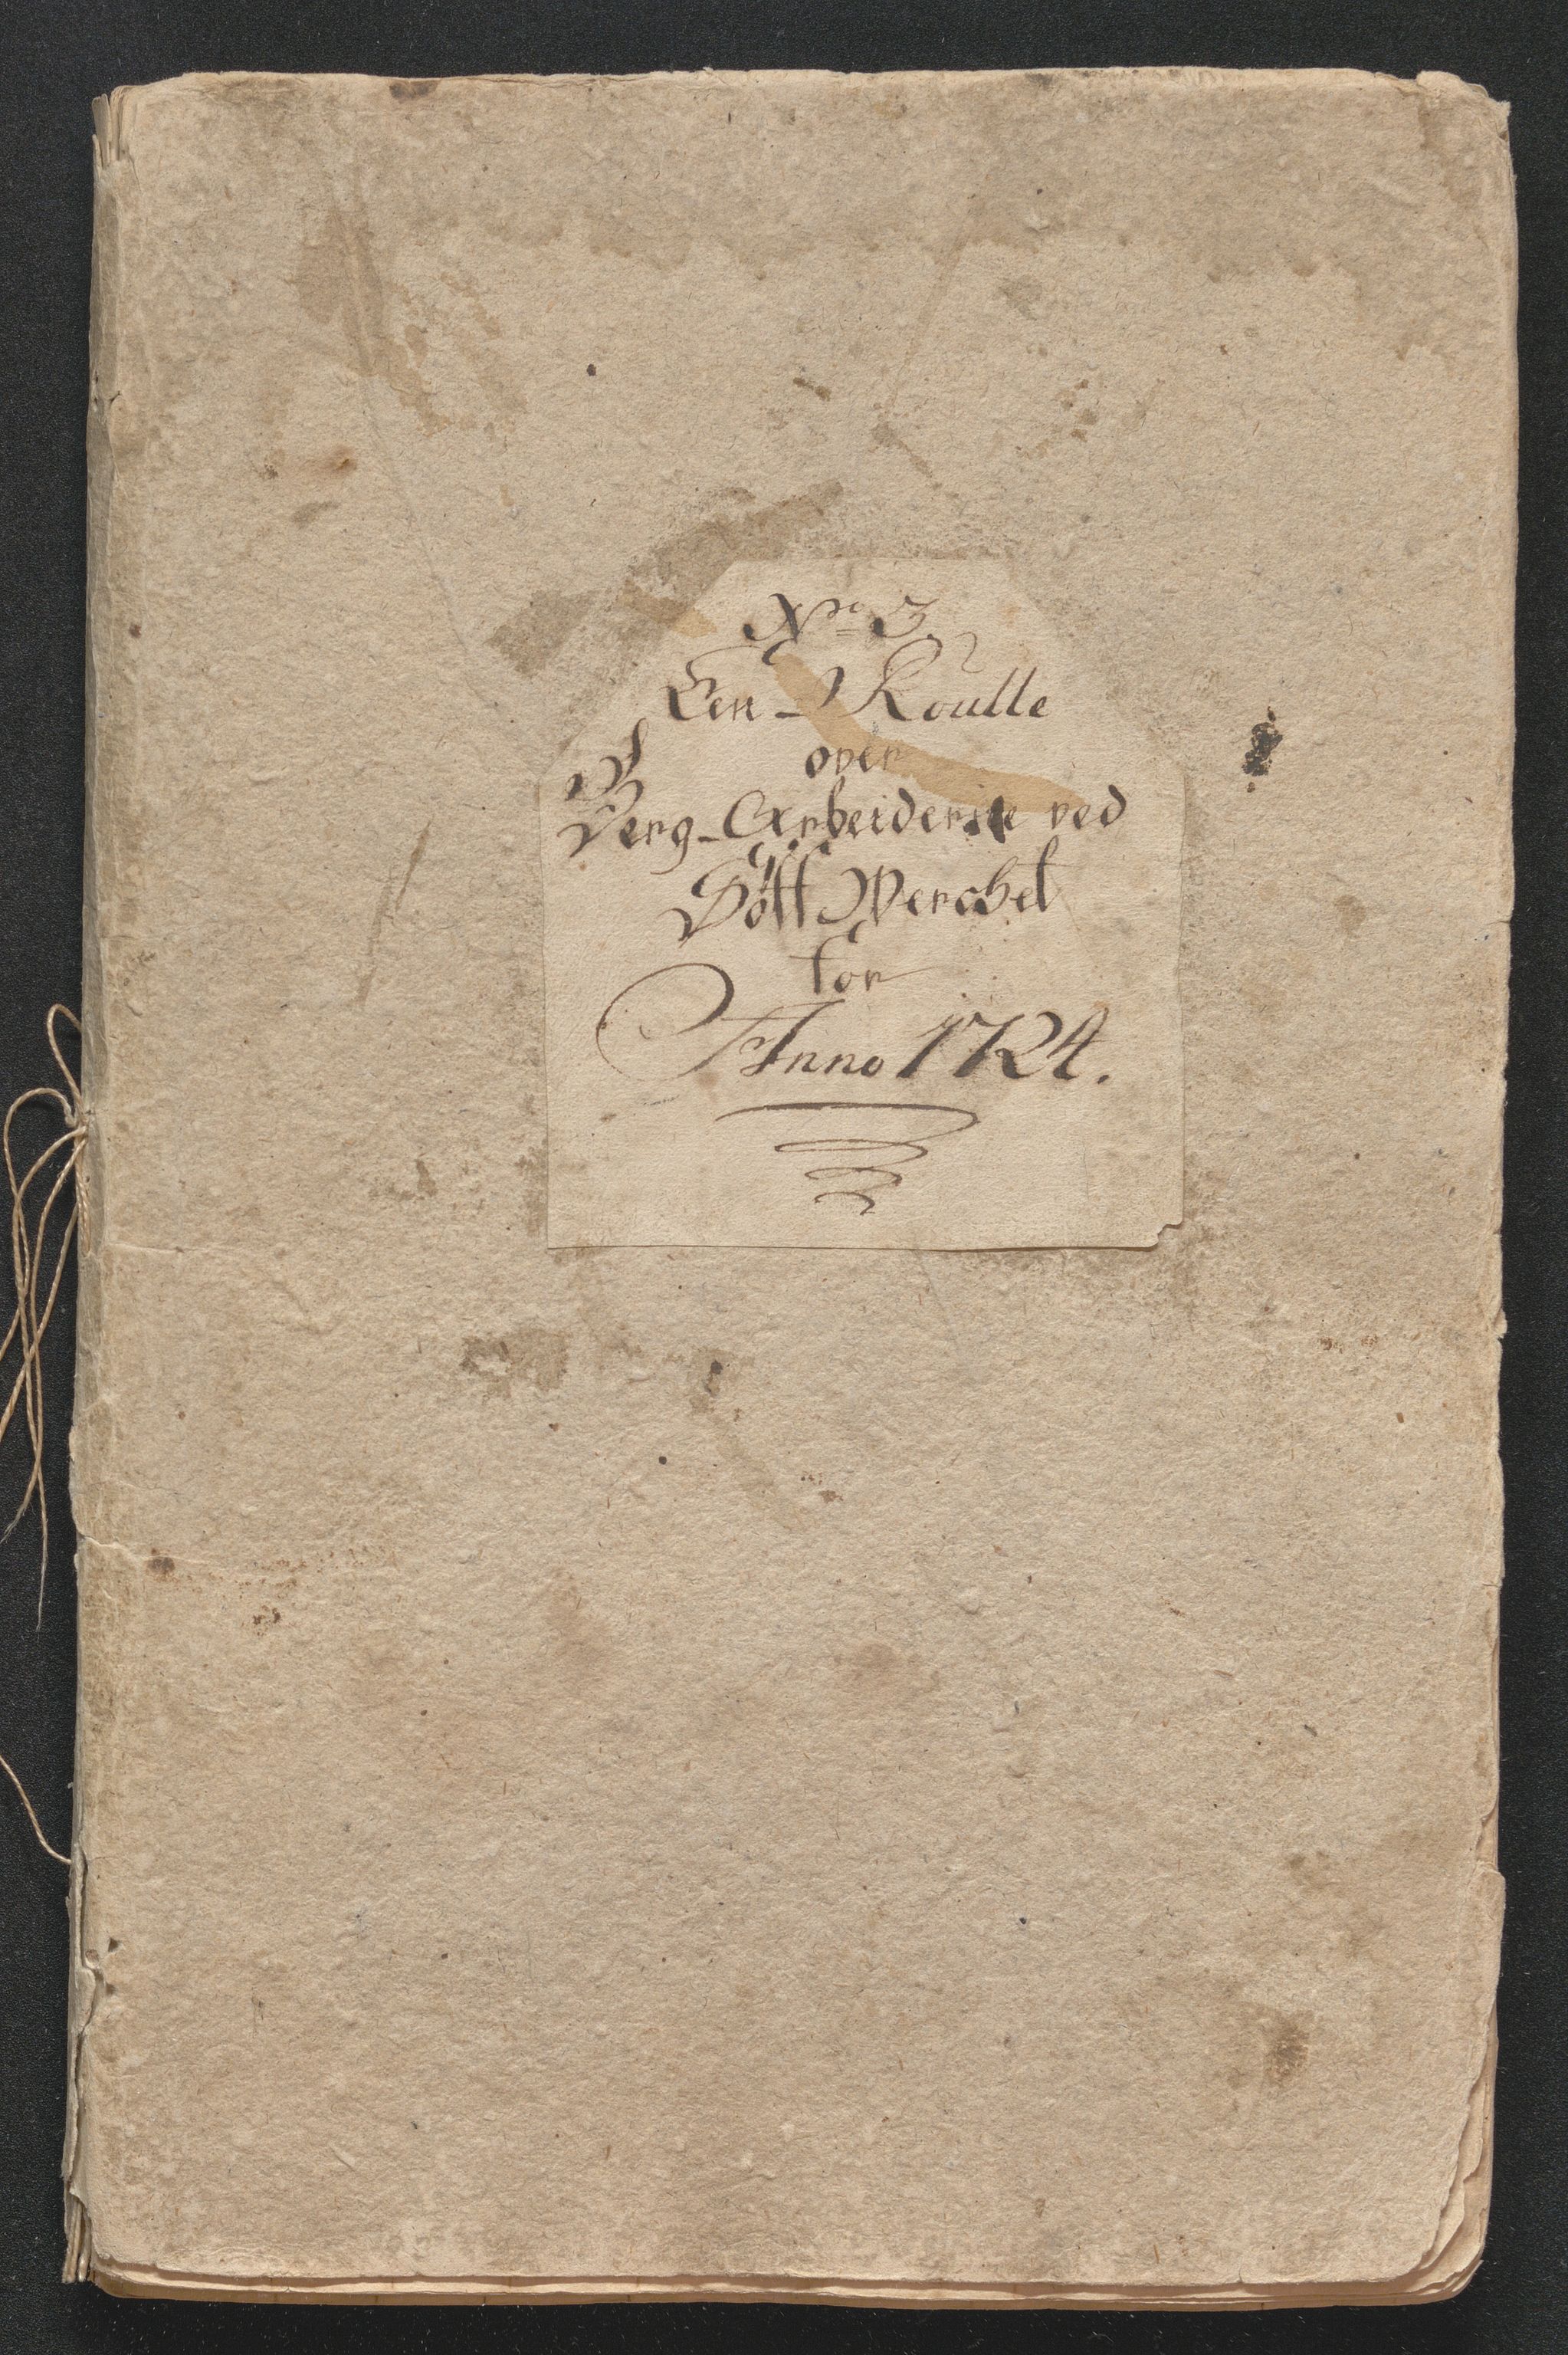 No 3.
Een Roulle
over
Berg-Arbeiderne ved
Sølf Werchet
for
Anno 1724.